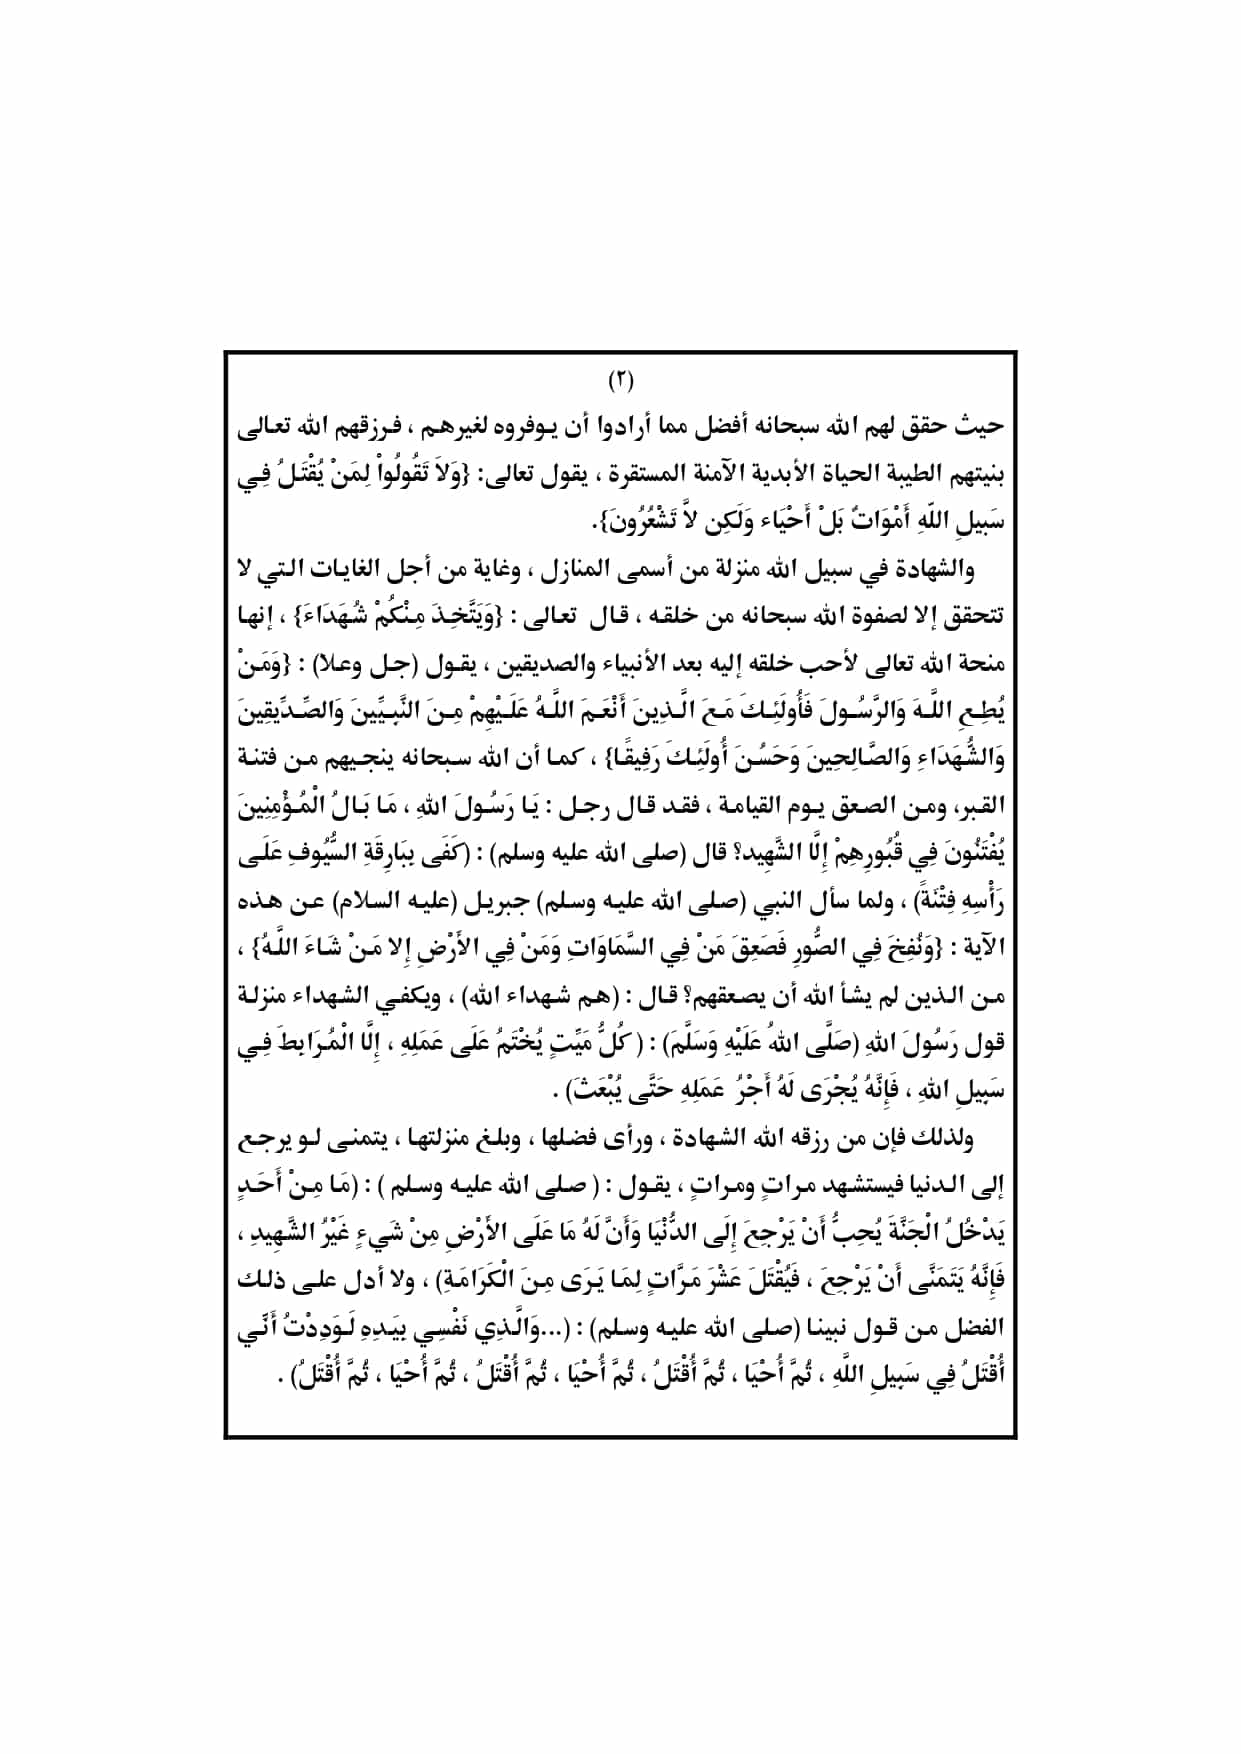 (٢)
حيث حقق لهم الله سبحانه أفضل مما أرادوا أن يـوفروه لغيرهـم ، فـرزقهم الله تعـالى
بنيتهم الطيبة الحياة الأبدية الآمنة المستقرة ، يقول تعالى: {وَلاَ تَقُولُواْ لِمَنْ يُقْتَلُ فِي
سَبِيلِ اللّهِ أَمْوَاتٌ بَلْ أَحْيَاء وَلَكِن لاَّ تَشْعُرُونَ}.
والشهادة في سبيل الله منزلة من أسمى المنازل ، وغاية من أجل الغايـات الـتي لا
تتحقق إلا لصفوة الله سبحانه من خلقـه ، قـال تعـالى : {وَيَتَّخِـذَ مِـنْكُمْ شُـهَدَاءَ} ، إنهـا
منحة الله تعالى لأحب خلقه إليه بعد الأنبياء والصديقين ، يقـول (جـل وعـلا) : {وَمَـنْ
يُطِـعِ اللَّـهَ وَالرَّسُـولَ فَأُولَئِـكَ مَـعَ الَّـذِينَ أَنْعَـمَ اللَّـهُ عَلَـيْهِمْ مِـنَ النَّبِـيِّينَ وَالصِّـدِّيقِينَ
وَالشُّهَدَاءِ وَالصَّالِحِينَ وَحَسُنَ أُولَئِكَ رَفِيقًا} ، كمـا أن الله سـبحانه ينجـيهم مـن فتنـة
القبر، ومـن الصعق يـوم القيامـة ، فقـد قـال رجـل : يَـا رَسُـولَ اللهِ ، مَـا بَـالُ الْمُـؤْمِنِينَ
يُفْتَنُونَ فِي قُبُورِهِمْ إِلَّا الشَّهِيد؟ قال (صلى الله عليه وسلم) : (كَفَى بِبَارِقَةِ السُّيُوفِ عَلَـى
رَأْسِهِ فِتْنَةً) ، ولما سأل النبي (صـلى الله عليـه وسـلم) جبريـل (عليـه السـلام) عـن هـذه
الآية : {وَنُفِخَ فِي الصُّورِ فَصَعِقَ مَنْ فِي السَّمَاوَاتِ وَمَنْ فِي الأَرْضِ إِلا مَـنْ شَـاءَ اللَّـهُ} ،
مـن الـذين لم يشـأ الله أن يصـعقهم؟ قـال : (هـم شـهداء الله) ، ويكفـي الشهداء منزلـة
قول رَسُولَ اللهِ (صَلَّى اللهُ عَلَيْهِ وَسَلَّمَ) : ( كُلُّ مَيِّتٍ يُخْتَمُ عَلَى عَمَلِهِ ، إِلَّا الْمُـرَابِطَ فِـي
سَبِيلِ اللهِ ، فَإِنَّهُ يُجْرَى لَهُ أَجْرُ عَمَلِهِ حَتَّى يُبْعَثَ) .
ولذلك فإن من رزقه الله الشهادة ، ورأى فضلها ، وبلغ منزلتهـا ، يتمنـى لـو يرجـع
إلى الـدنيا فيستشهد مـراتٍ ومـراتٍ ، يقـول : ( صـلى الله عليـه وسـلم ) : (مَـا مِـنْ أَحَـدٍ
يَدْخُلُ الْجَنَّةَ يُحِبُّ أَنْ يَرْجِعَ إِلَى الدُّنْيَا وَأَنَّ لَهُ مَا عَلَى الأَرْضِ مِنْ شَيءٍ غَيْرُ الشَّهِيدِ ،
فَإِنَّهُ يَتَمَنَّى أَنْ يَرْجِعَ ، فَيُقْتَلَ عَشْرَ مَرَّاتٍ لِمَا يَـرَى مِـنَ الْكَرَامَـةِ) ، ولا أدل علـى ذلـك
الفضل مـن قـول نبينـا (صـلى الله عليـه وسـلم) : (...وَالَّـذِي نَفْسِـي بِيَـدِهِ لَـوَدِدْتُ أَنِّـي
أُقْتَلُ فِي سَبِيلِ اللَّهِ ، ثُمَّ أُحْيَا ، ثُمَّ أُقْتَلُ ، ثُمَّ أُحْيَا ، ثُمَّ أُقْتَلُ ، ثُمَّ أُحْيَا ، ثُمَّ أُقْتَلُ) .